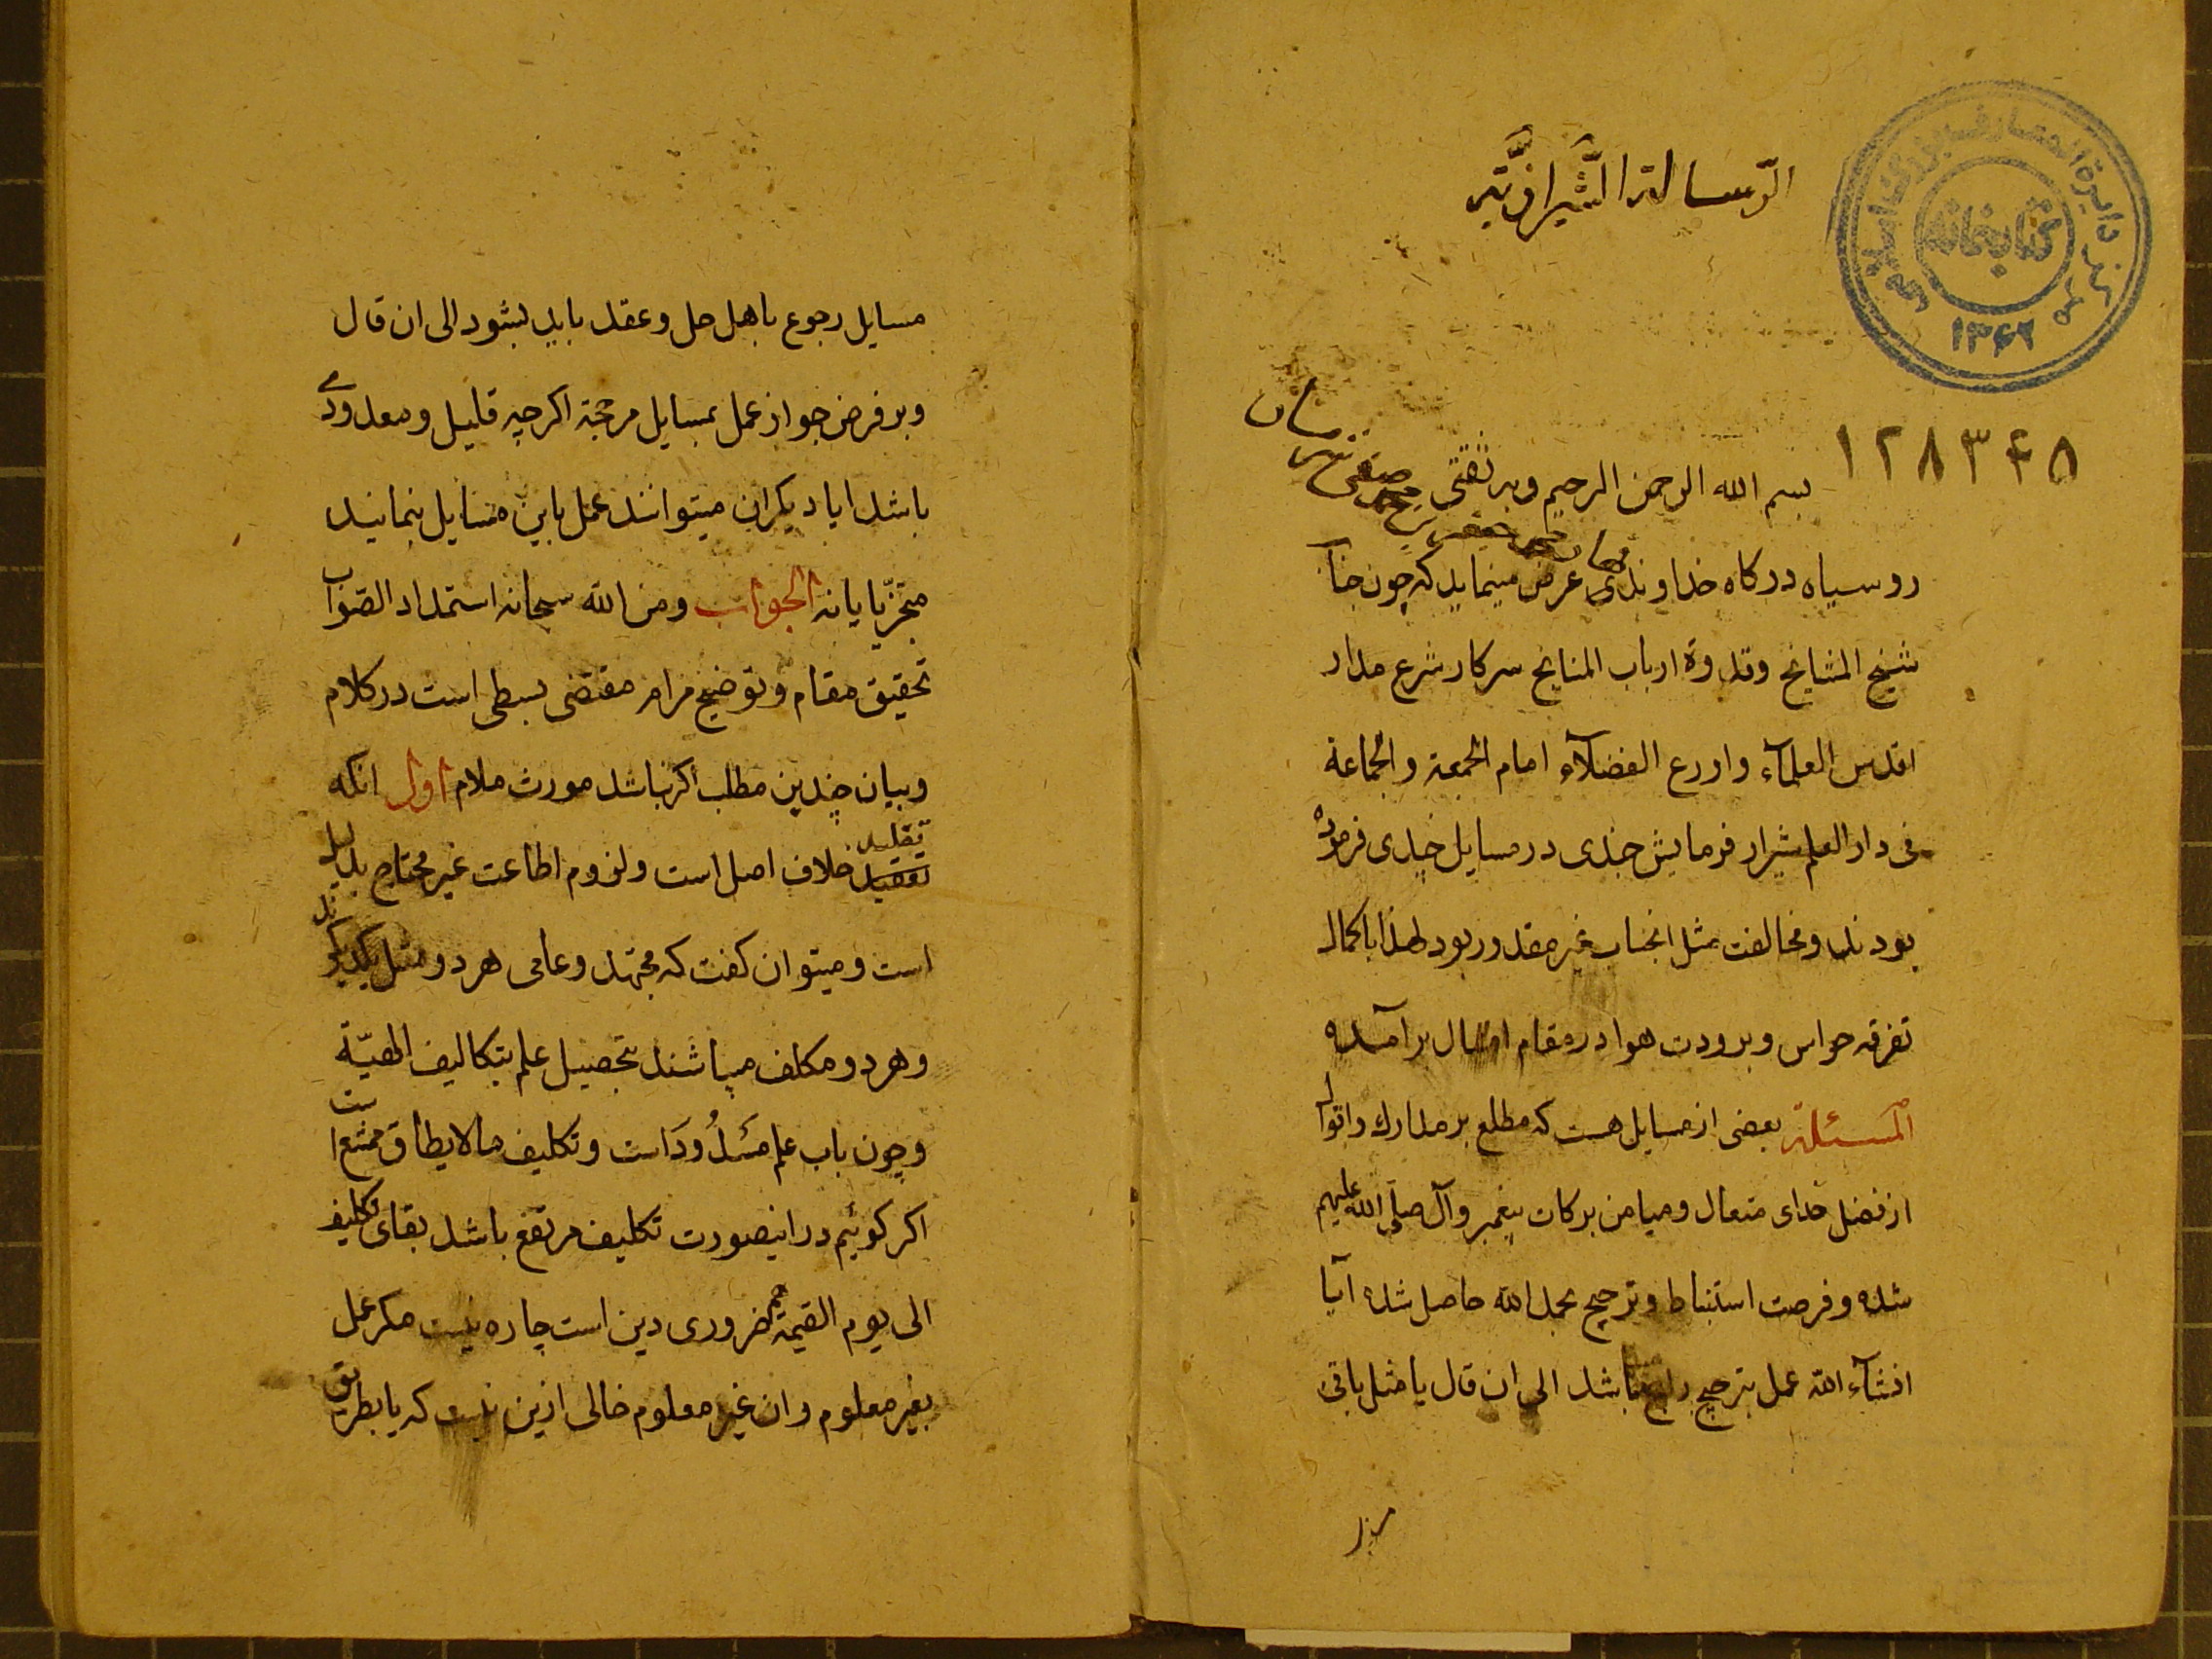 الرّسالة الشّیرازیّة
مرکز دایرة المعارف بزرگ اسلامی
کتابخانه
۱۳۶۲
۱۲۸۳۴۵
بسم الله الرحمن الرحیم وبه ثقتی
روسیاه درکاه خداوندی عرض مینماید که چون جناب
شیخ المشایخ وقدوة ارباب المنایح سرکار شرع مدار
اقدس العلمآء واورع الفضلآء امام الجمعة والجماعة
فی دار العلم شیراز فرمایش چندی در مسایل چندی فرموده
بودند ومخالفت مثل انجناب غیر مقدور بود لهذا باکمال
تفرقه حواس وبرودت هوا در مقام امتثال برآمده
المسئلة بعضی از مسایل هست که مطلع بر مدارك واقوال
از فضل خدای متعال ومیامن برکات پیغمبر وآل صلی الله علیهم
شده وفرصت استنباط وترجیح بحمد الله حاصل شده آیا
انشآء الله عمل بترجیح راجح باشد الی ان قال یا مثل باقی
مسایل رجوع باهل حل وعقد باید بشود الی ان قال
وبر فرض جواز عمل بمسایل مرجحة اکرچه قلیل ومعدودی
باشد ایا دیکران میتوانند عمل باین مسایل بنمایند
متجزّیا یا نه الجواب ومن الله سبحانه استمداد الصّواب
تحقیق مقام وتوضیح مرام مقتضی بسطی است در کلام
وبیان چندین مطلب اکر نباشد مورث ملام اول انکه
تقلید خلاف اصل است ولزوم اطاعت غیر محتاج بدلیل
است ومیتوان کفت که مجتهد وعامی هر دو مثل یکدیکرند
وهر دو مکلف میباشند بتحصیل علم بتکالیف الهیّة
وچون باب علم مسدود است وتکلیف مالایطاق ممتنع است
اکر کوئیم در اینصورت تکلیف مرتفع باشد بقای تکلیف
الی یوم القیمة هم ضروری دین است چاره نیست مکر عمل
بغیر معلوم وان غیر معلوم خالی ازین نیست که یا بطریق